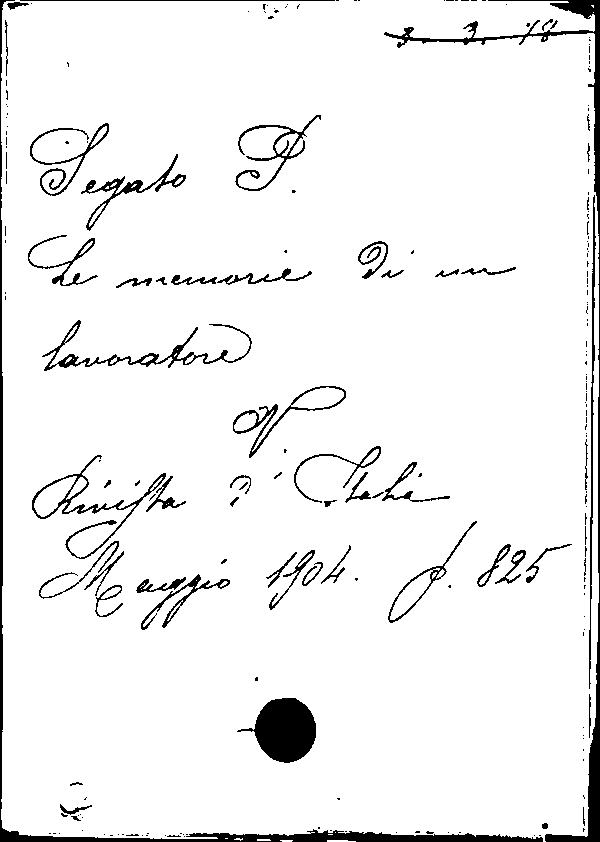 3. 3. 78
Segato P.
Le memorie di un
lavoratore
V
Rivista d'Italia
Maggio 1904. p. 825